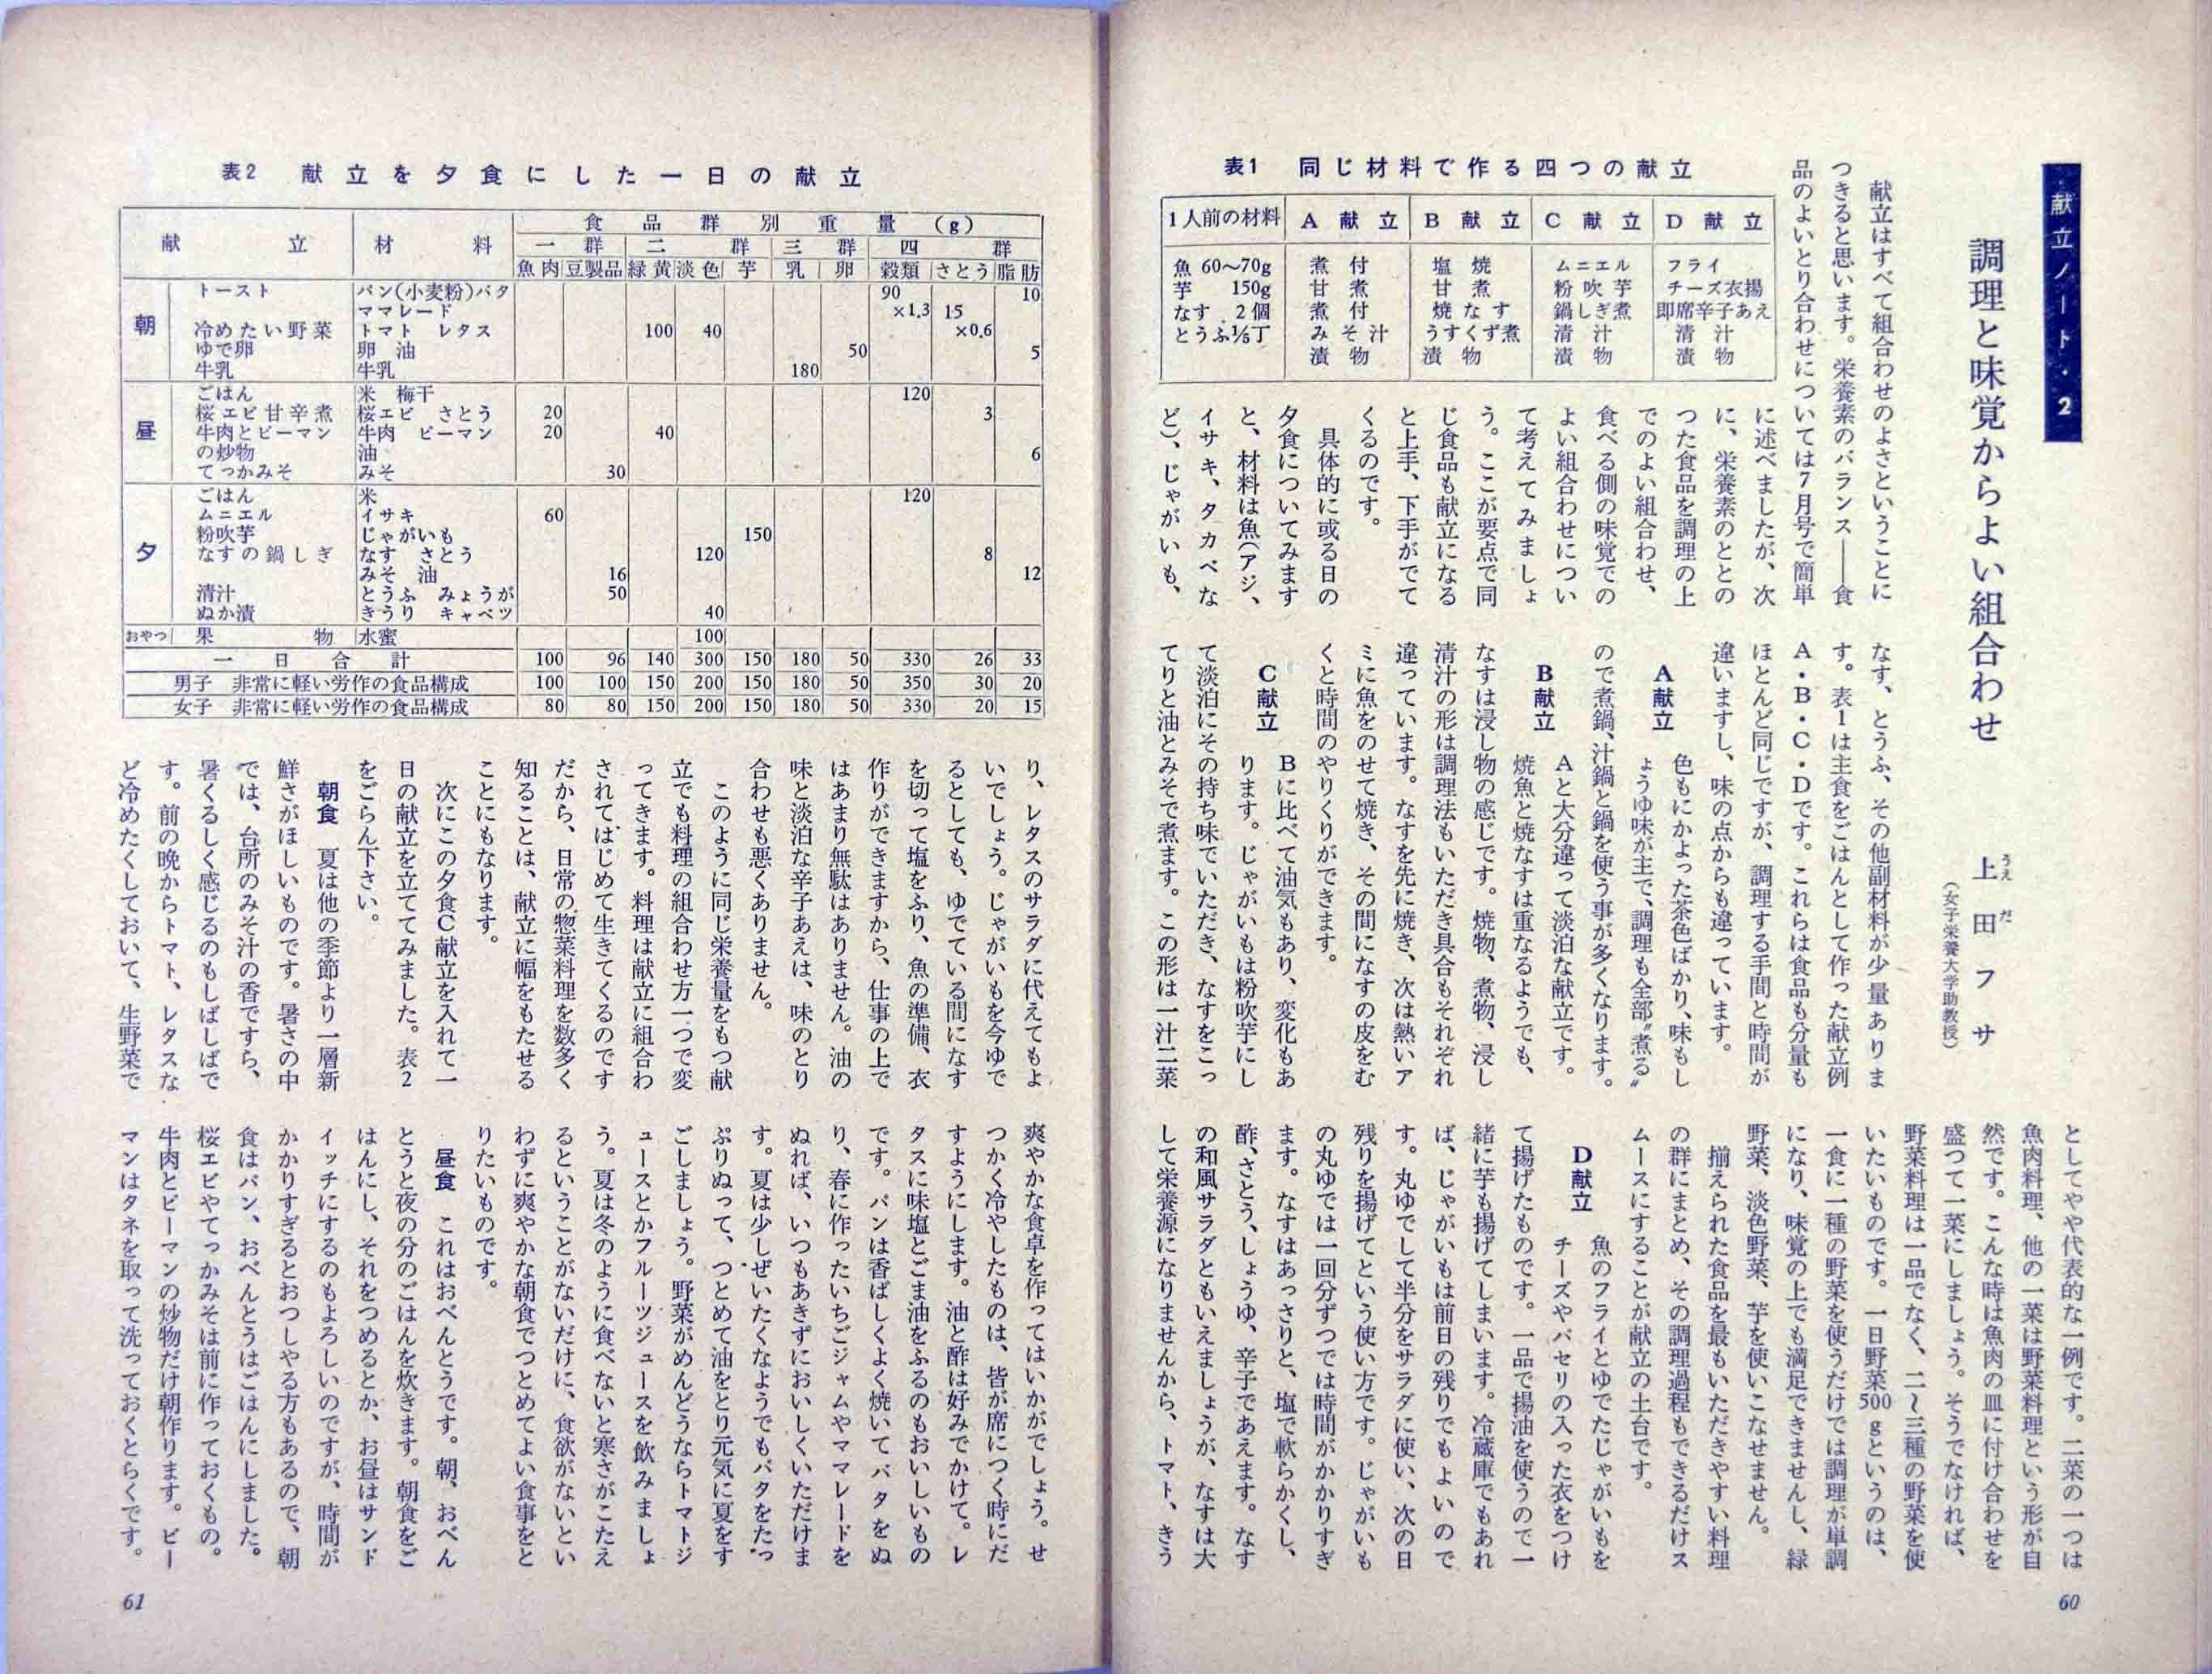 献立ノート・2
調理と味覚からよい組合わせ
上田フサ
うえだ
(女子栄養大学助教授)
献立はすべて組合わせのよさということに
つきると思います。栄養素のバランス――食
品のよいとり合わせについては7月号で簡単
に述べましたが、次
に、栄養素のととの
った食品を調理の上
でのよい組合わせ、
食べる側の味覚での
よい組合わせについ
て考えてみましょ
う。ここが要点で同
じ食品も献立になる
と上手、下手がでて
くるのです。
具体的に或る日の
夕食についてみます
と、材料は魚(アジ、
イサキ、タカベな
ど)、じゃがいも、
表1 同じ材料で作る四つの献立
1人前の材料 A献立 B献立 C献立 D献立
魚 60〜70g 煮付 塩焼 ムニエル フライ
芋 150g 甘煮 甘煮 粉吹芋 チーズ衣揚
なす 2個 煮付 焼なす 鍋しぎ煮 即席辛子あえ
とうふ⅕丁 みそ汁 うすくず煮 清汁 清汁
漬物 漬物 漬物 漬物
なす、とうふ、その他副材料が少量ありま
す。表1は主食をごはんとして作った献立例
A・B・C・Dです。これらは食品も分量も
ほとんど同じですが、調理する手間と時間が
違いますし、味の点からも違っています。
A献立 色もにかよった茶色ばかり、味もし
ょうゆ味が主で、調理も全部〝煮る〟
ので煮鍋、汁鍋と鍋を使う事が多くなります。
B献立 Aと大分違って淡泊な献立です。
焼魚と焼なすは重なるようでも、
なすは浸し物の感じです。焼物、煮物、浸し
清汁の形は調理法もいただき具合もそれぞれ
違っています。なすを先に焼き、次は熱いア
ミに魚をのせて焼き、その間になすの皮をむ
くと時間のやりくりができます。
C献立 Bに比べて油気もあり、変化もあ
ります。じゃがいもは粉吹芋にし
て淡泊にその持ち味でいただき、なすをこっ
てりと油とみそで煮ます。この形は一汁二菜
としてやや代表的な一例です。二菜の一つは
魚肉料理、他の一菜は野菜料理という形が自
然です。こんな時は魚肉の皿に付け合わせを
盛つて一菜にしましょう。そうでなければ、
野菜料理は一品でなく、二〜三種の野菜を使
いたいものです。一日野菜500gというのは、
一食に一種の野菜を使うだけでは調理が単調
になり、味覚の上でも満足できませんし、緑
野菜、淡色野菜、芋を使いこなせません。
揃えられた食品を最もいただきやすい料理
の群にまとめ、その調理過程もできるだけス
ムースにすることが献立の土台です。
D献立 魚のフライとゆでたじゃがいもを
チーズやパセリの入った衣をつけ
て揚げたものです。一品で揚油を使うので一
緒に芋も揚げてしまいます。冷蔵庫でもあれ
ば、じゃがいもは前日の残りでもよいので
す。丸ゆでして半分をサラダに使い、次の日
残りを揚げてという使い方です。じゃがいも
の丸ゆでは一回分ずつでは時間がかかりすぎ
ます。なすはあっさりと、塩で軟らかくし、
酢、さとう、しょうゆ、辛子であえます。なす
の和風サラダともいえましょうが、なすは大
して栄養源になりませんから、トマト、きう
60
表2 献立を夕食にした一日の献立
献立 材料 食品群別重量(g)
一群 二群 三群 四群
魚肉 豆製品 緑黄 淡色 芋 乳 卵 穀類 さとう 脂肪
朝
トースト パン(小麦粉)バタ 90 10
ママレード ×1.3 15
冷めたい野菜 トマト レタス 100 40 ×0.6
ゆで卵 卵 油 50 5
牛乳 牛乳 180
昼
ごはん 米 梅干 120
桜エビ甘辛煮 桜エビ さとう 20 3
牛肉とピーマン 牛肉 ピーマン 20 40
の炒物 油 6
てっかみそ みそ 30
夕
ごはん 米 120
ムニエル イサキ 60
粉吹芋 じゃがいも 150
なすの鍋しぎ なす さとう 120 8
みそ 油 16 12
清汁 とうふ みょうが 50
ぬか漬 きうり キャベツ 40
おやつ 果物 水蜜 100
一日合計 100 96 140 300 150 180 50 330 26 33
男子 非常に軽い労作の食品構成 100 100 150 200 150 180 50 350 30 20
女子 非常に軽い労作の食品構成 80 80 150 200 150 180 50 330 20 15
り、レタスのサラダに代えてもよ
いでしょう。じゃがいもを今ゆで
るとしても、ゆでている間になす
を切って塩をふり、魚の準備、衣
作りができますから、仕事の上で
はあまり無駄はありません。油の
味と淡泊な辛子あえは、味のとり
合わせも悪くありません。
このように同じ栄養量をもつ献
立でも料理の組合わせ方一つで変
ってきます。料理は献立に組合わ
されてはじめて生きてくるのです
だから、日常の惣菜料理を数多く
知ることは、献立に幅をもたせる
ことにもなります。
次にこの夕食C献立を入れて一
日の献立を立ててみました。表2
をごらん下さい。
朝食 夏は他の季節より一層新
鮮さがほしいものです。暑さの中
では、台所のみそ汁の香ですら、
暑くるしく感じるのもしばしばで
す。前の晩からトマト、レタスな
ど冷めたくしておいて、生野菜で
爽やかな食卓を作ってはいかがでしょう。せ
つかく冷やしたものは、皆が席につく時にだ
すようにします。油と酢は好みでかけて。レ
タスに味塩とごま油をふるのもおいしいもの
です。パンは香ばしくよく焼いてバタをぬ
り、春に作ったいちごジャムやママレードを
ぬれば、いつもあきずにおいしくいただけま
す。夏は少しぜいたくなようでもバタをたっ
ぷりぬって、つとめて油をとり元気に夏をす
ごしましょう。野菜がめんどうならトマトジ
ュースとかフルーツジュースを飲みましょ
う。夏は冬のように食べないと寒さがこたえ
るということがないだけに、食欲がないとい
わずに爽やかな朝食でつとめてよい食事をと
りたいものです。
昼食 これはおべんとうです。朝、おべん
とうと夜の分のごはんを炊きます。朝食をご
はんにし、それをつめるとか、お昼はサンド
イッチにするのもよろしいのですが、時間が
かかりすぎるとおつしやる方もあるので、朝
食はパン、おべんとうはごはんにしました。
桜エビやてっかみそは前に作っておくもの。
牛肉とピーマンの炒物だけ朝作ります。ピー
マンはタネを取って洗っておくとらくです。
61